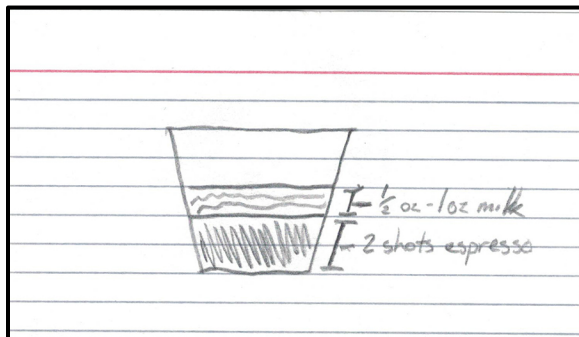 ½ oz - 1oz milk
2 shots espresso